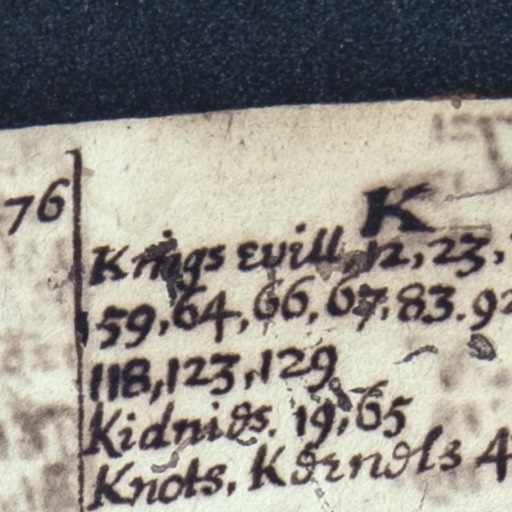 76
K
Kings evill, 12, 23,
59, 64, 66, 67, 83. 92
118, 123, 129
Kidnies. 19, 65
Knots, Kernels 4